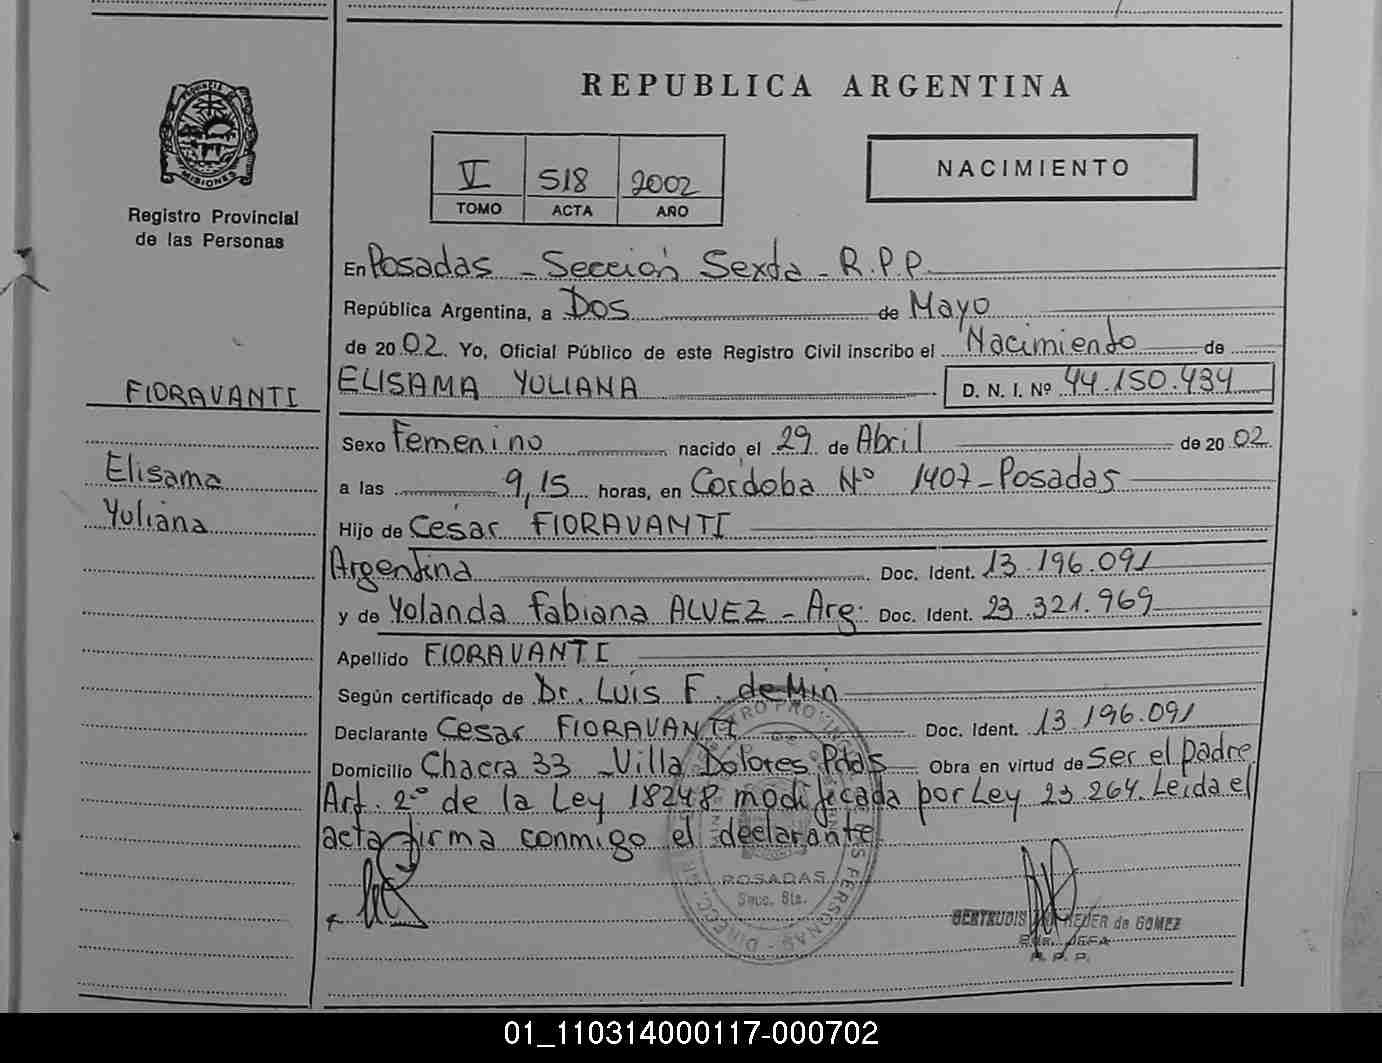 REPUBLICA ARGENTINA
PROVINCIA DE MISIONES
Registro Provincial
de las Personas
V 518 2002
TOMO ACTA AÑO
NACIMIENTO
En Posadas - Sección Sexta - R.P.P.
República Argentina, a Dos de Mayo
de 2002. Yo, Oficial Público de este Registro Civil inscribo el Nacimiento de
ELISAMA YULIANA D. N. I. Nº 44.150.434
FIORAVANTI
Elisama
Yuliana
Sexo Femenino nacido el 29 de Abril de 2002.
a las 9,15 horas, en Cordoba Nº 1407-Posadas
Hijo de Cesar FIORAVANTI
Argentina Doc. Ident. 13.196.091
y de Yolanda Fabiana ALVEZ - Arg. Doc. Ident. 23.321.969
Apellido FIORAVANTI
Según certificado de Dr. Luis F. de Min
Declarante Cesar FIORAVANTI Doc. Ident. 13.196.091
Domicilio Chacra 33 - Villa Dolores Pdas Obra en virtud de ser el padre
Art. 2º de la Ley 18248 modificada por Ley 23.264. Leida el
acta firma conmigo el declarante
POSADAS
Secc. 6ta.
GERTRUDIS de GOMEZ
JEFA
R. P. P.
01_110314000117-000702